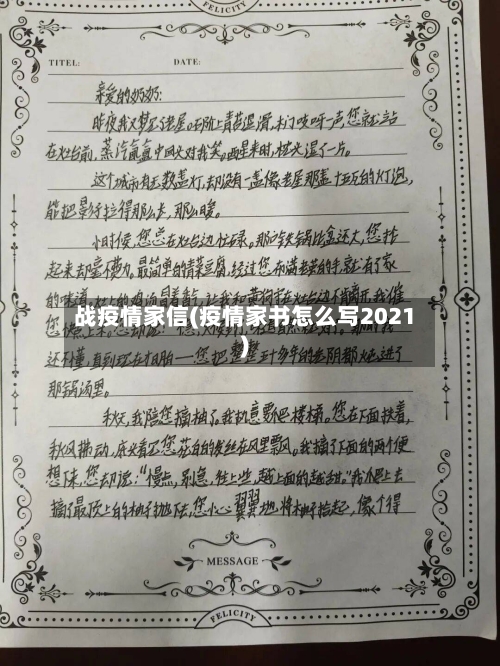 FELICITY
TITEL: DATE:
亲爱的奶奶:
昨夜我又梦见老屋。石阶上青苔湿滑,木门吱呀一声,您就站
在灶台前,蒸汽氤氲中回头对我笑。醒来时,枕头湿了一片。
这个城市有无数盏灯,却没有一盏像老屋那盏十五瓦的灯泡,
能把影子拉得那么长,那么暖。
小时候,您总在灶台边忙碌。那口铁锅比盆还大,您拎
起来却毫不费力。最简单的青菜豆腐,经过您布满老茧的手,就有了家
的味道。
战疫情家信(疫情家书怎么写2021
)
还不懂,直到现在才明白——您把整整五十多年的光阴都炖进了
那锅汤里。
秋天,我陪您摘柚子。我执意要爬楼梯。您在下面扶着,
秋风拂动,底下看见您花白的发丝在风里飘。我摘了下面的两个便
想下来,您却说:“慢点,别急,往上些,越上面的越甜。”我爬上去
摘了最顶上的柚子抛下去,您小心翼翼地将柚子拾起,像个得
MESSAGE
FELICITY